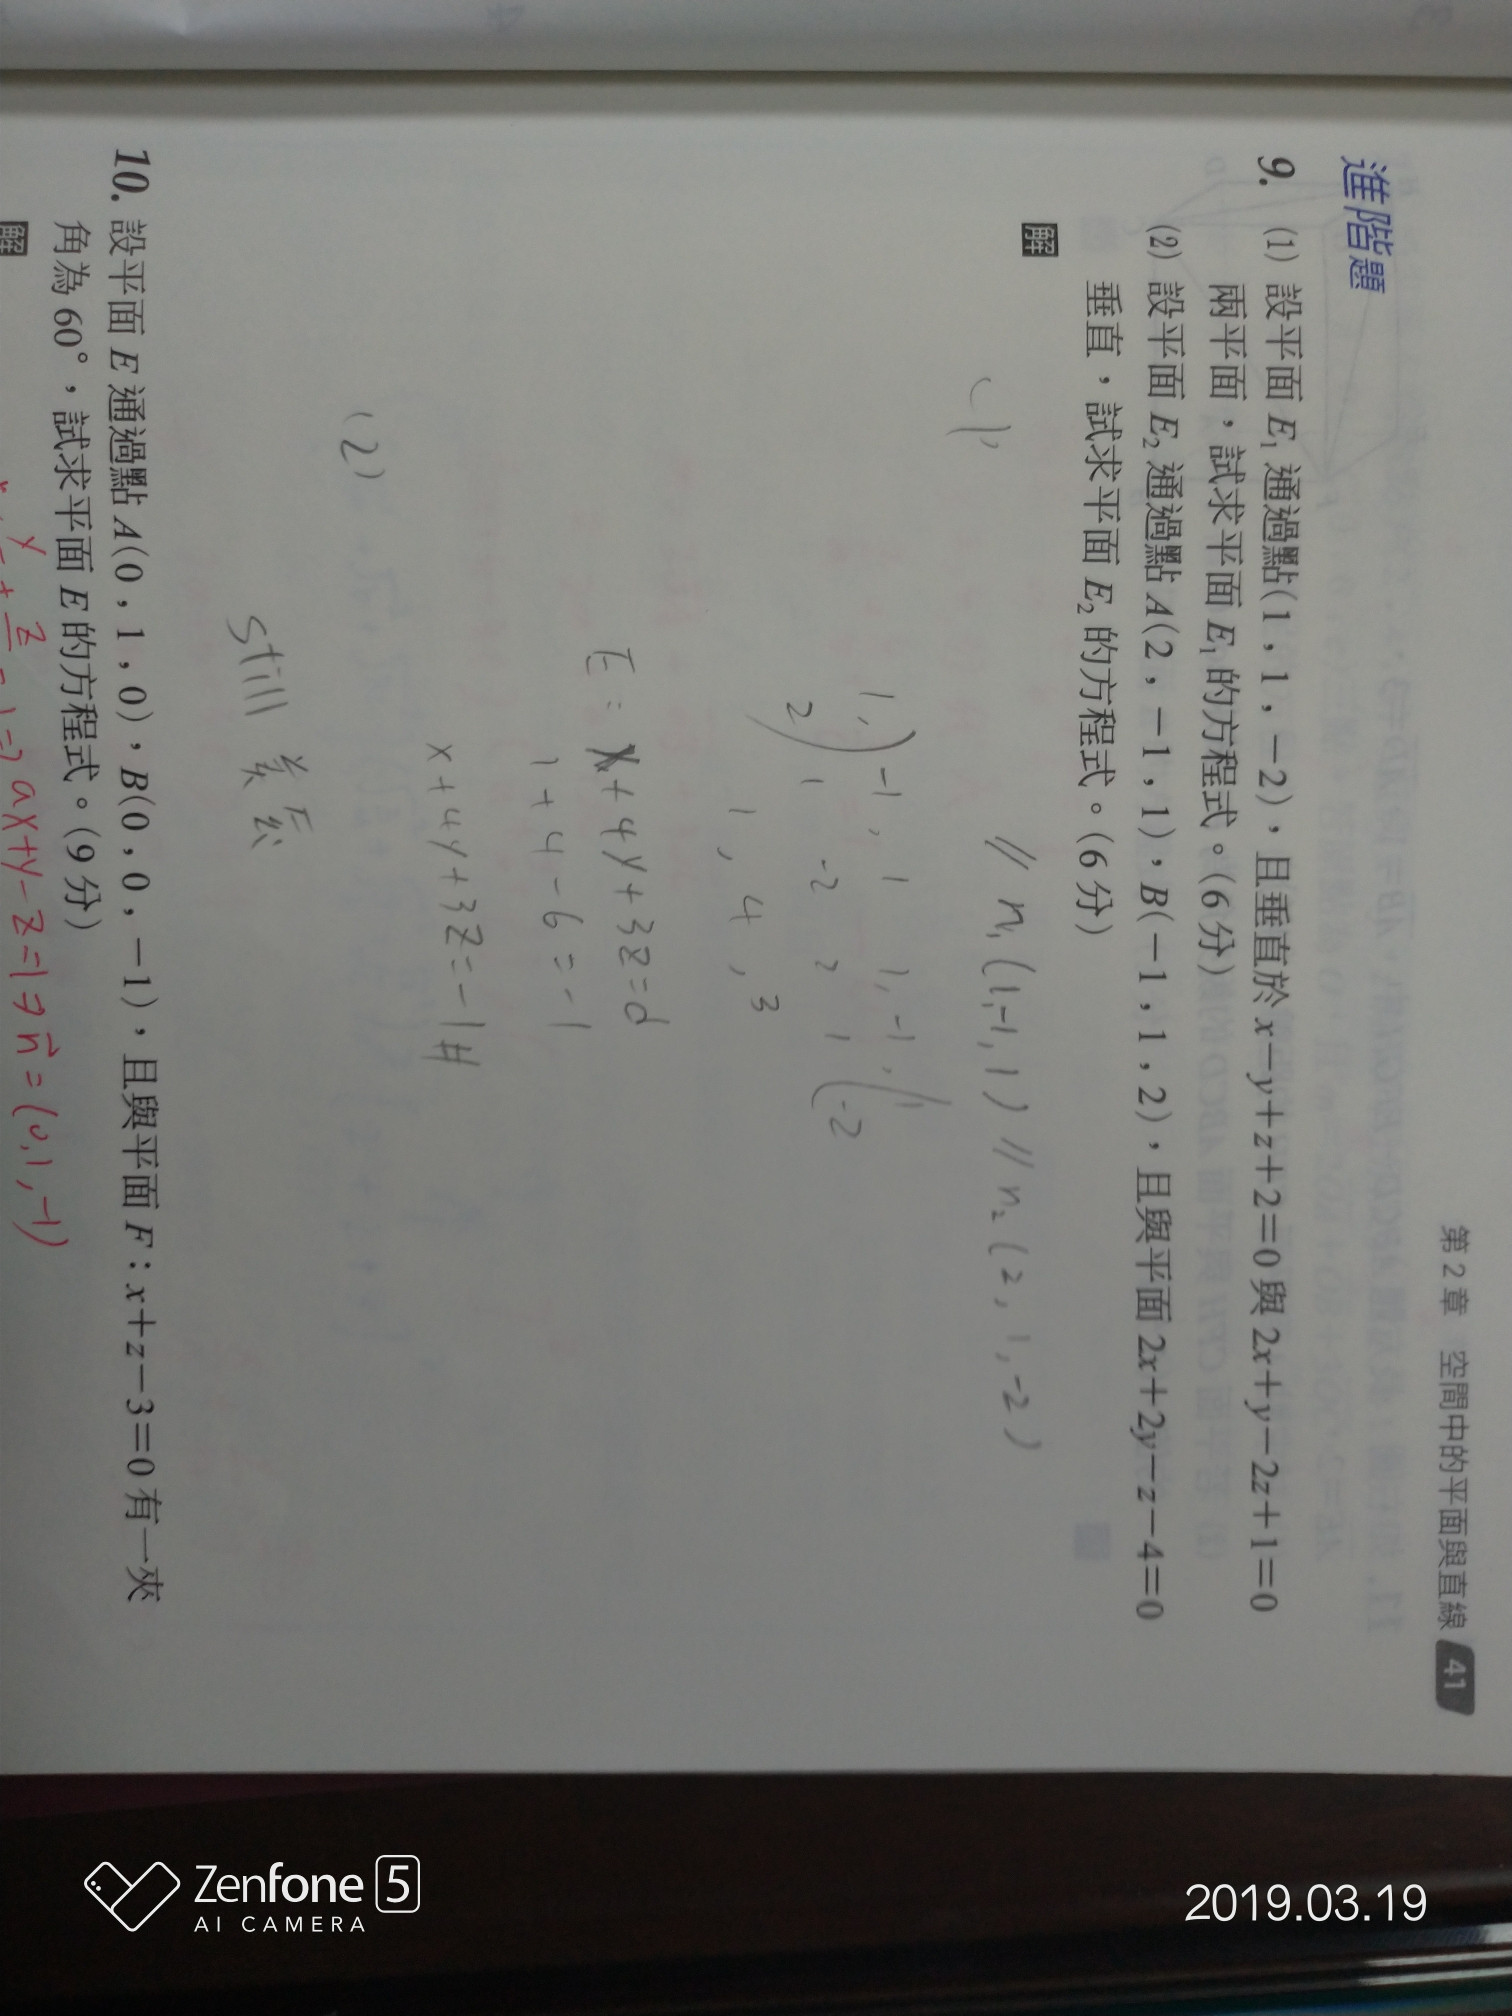 第 2 章 空間中的平面與直線 41
進階題
9. (1) 設平面 E₁ 通過點(1,1,−2),且垂直於 x−y+z+2=0 與 2x+y−2z+1=0
兩平面,試求平面 E₁ 的方程式。(6 分)
(2) 設平面 E₂ 通過點 A(2,−1,1),B(−1,1,2),且與平面 2x+2y−z−4=0
垂直,試求平面 E₂ 的方程式。(6 分)
解
(1)
// n₁ (1,-1,1) // n₂ (2,1,-2)
1, -1, 1 1, -1, 1
2 1 -2 2 1 -2
1, 4, 3
E: x+4y+3z=d
1+4-6=-1
x+4y+3z=-1#
(2)
still
10. 設平面 E 通過點 A(0,1,0),B(0,0,−1),且與平面 F:x+z−3=0 有一夾
角為 60°,試求平面 E 的方程式。(9 分)
解
ax+y-z=1⇒n=(0,1,-1)
Zenfone 5
AI CAMERA
2019.03.19